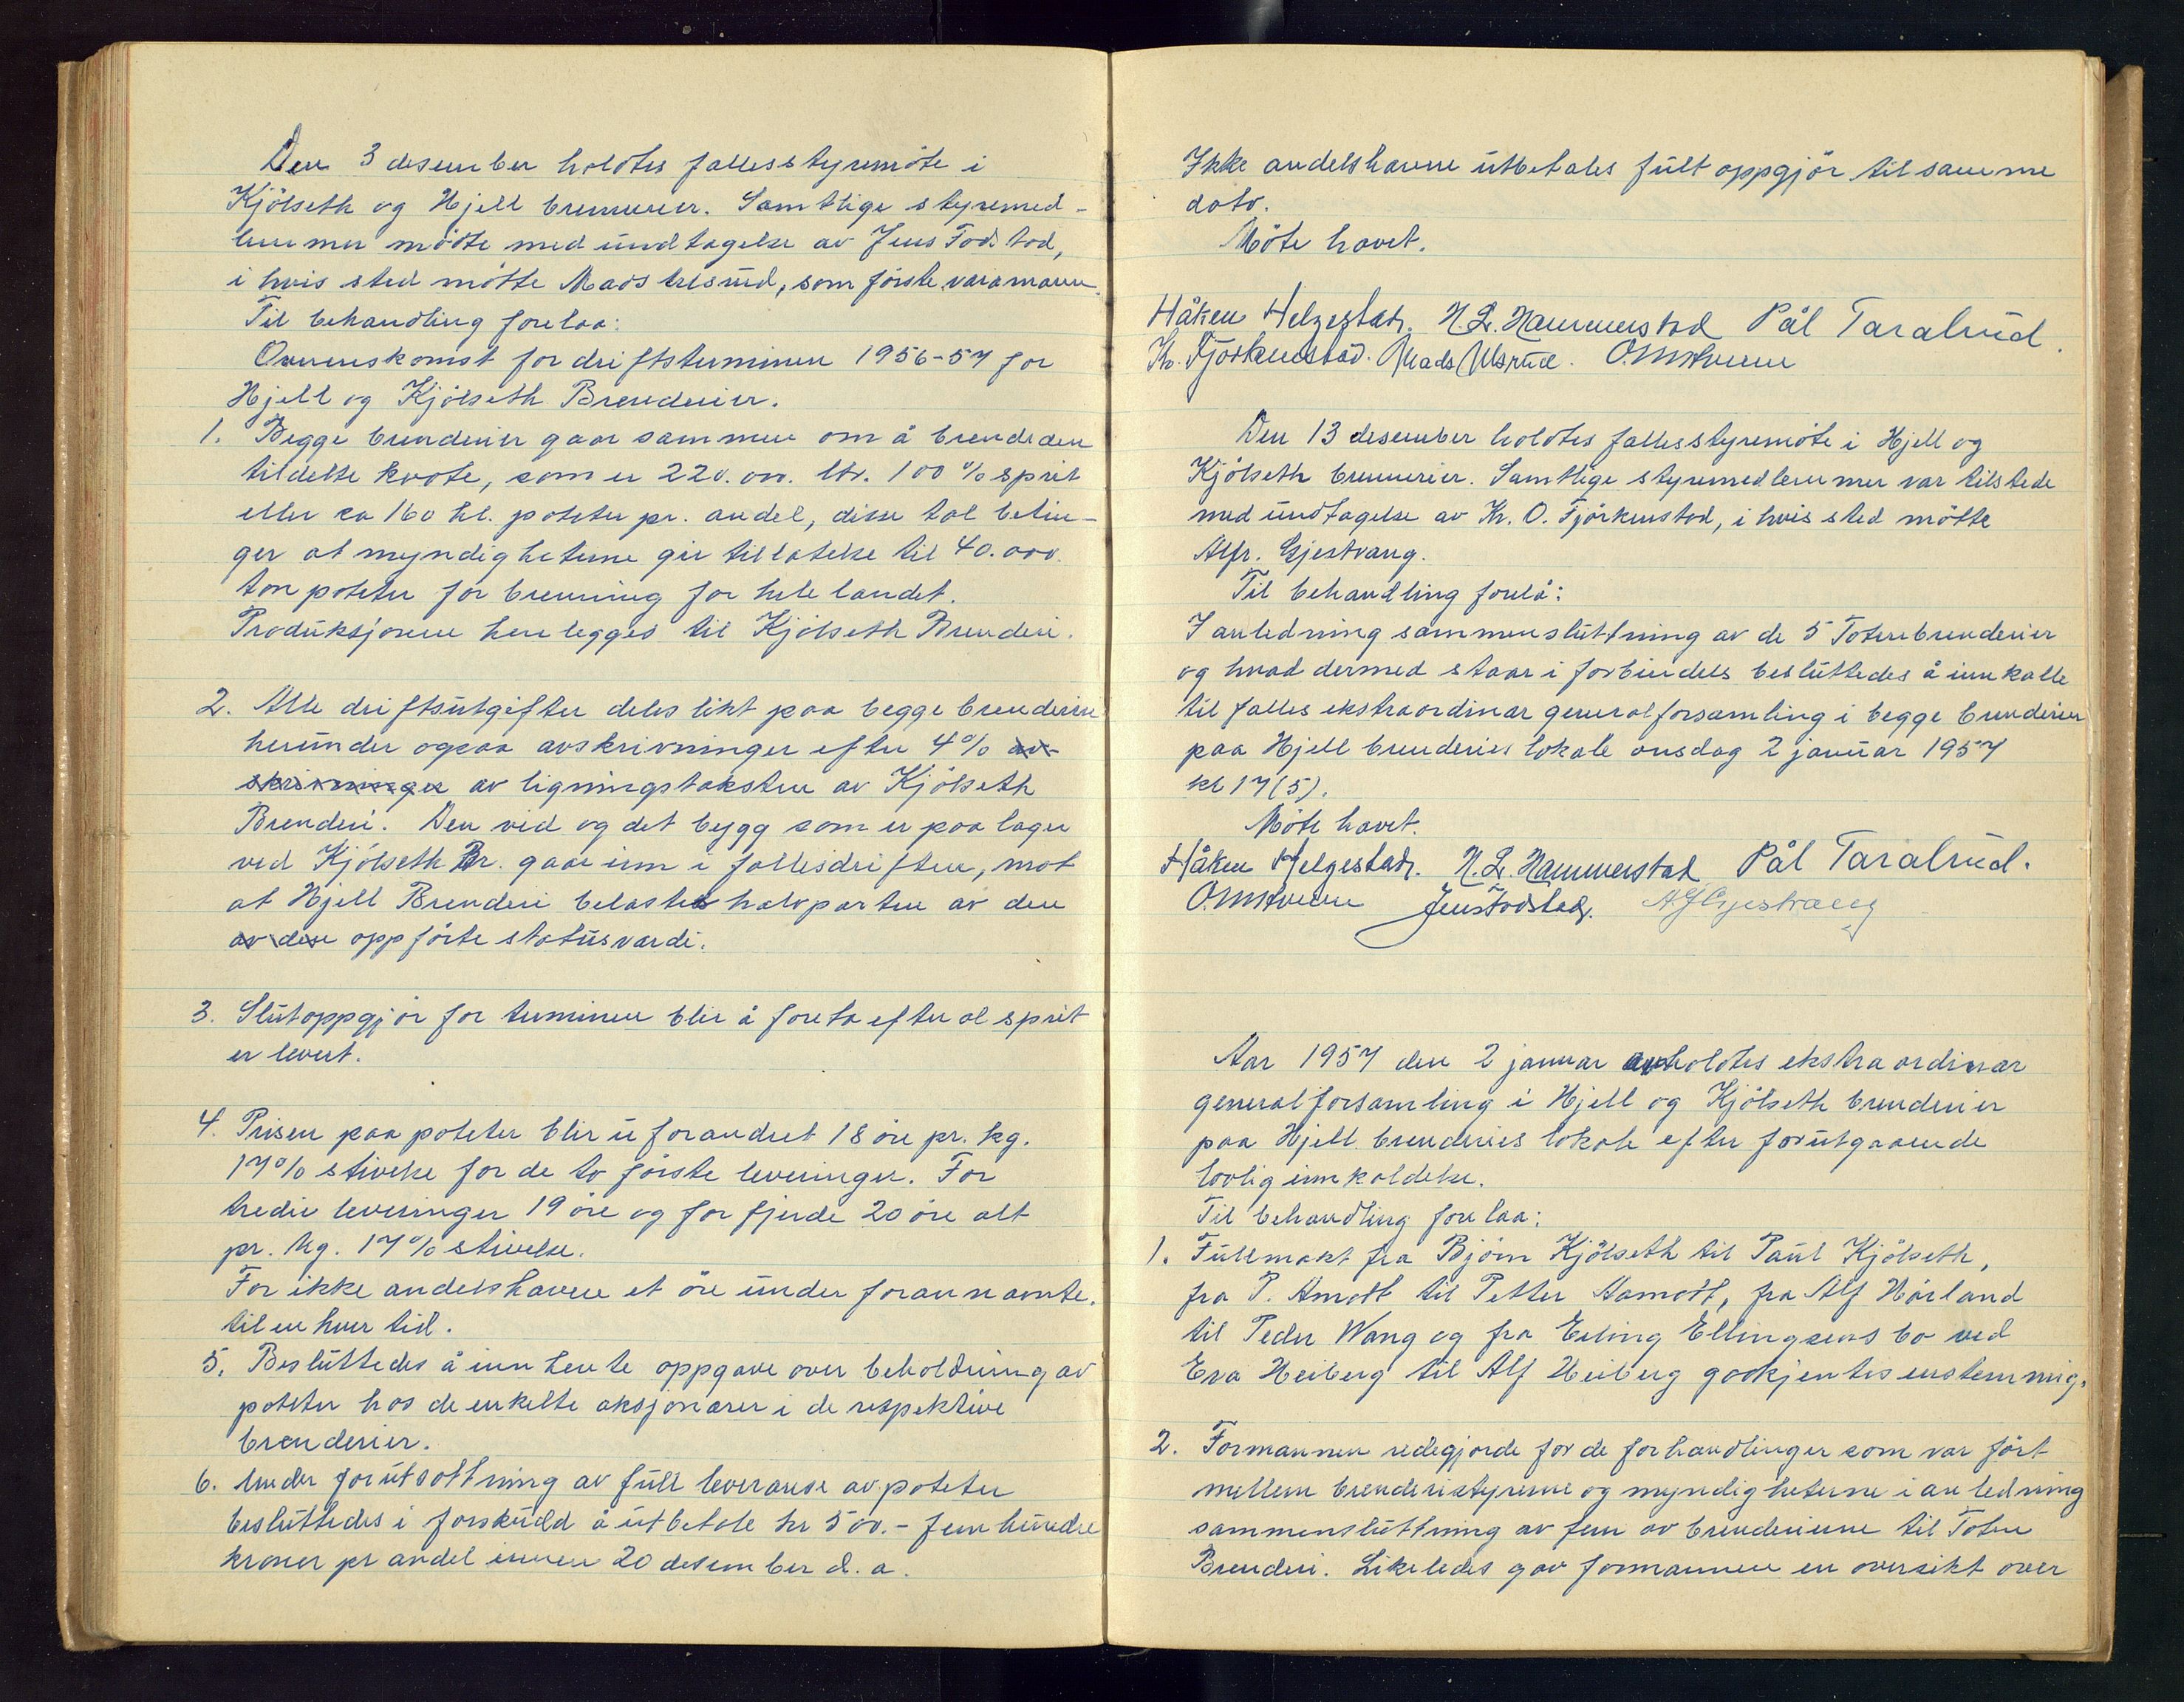 Den 3 desember holdtes fallesstyremöte i
Kjölseth og Hjell brennerier. Samtlige styremed-
lemmer mödte med undtagelse av Jens Fodstad,
i hvis sted mötte Mads Ulsrud, som förste varamann.
Til behandling forelaa:
Overenskomst for driftsterminen 1956-57 for
Hjell og Kjölseth Brenderier.
1. Begge brenderier gaar sammen om å brende den
tildelte kvote, som er 220.000. ltr. 100 % sprit
eller ca 160 hl. poteter pr. andel, disse tal betin-
ger at myndighetene gir tillatelse til 40.000.
ton poteter for brenning for hele landet.
Produksjonen henlegges til Kjölseth Brenderi.
2. Alle driftsutgifter deles likt paa begge brenderier
herunder ogsaa avskrivninger efter 4% av-
skrivninger av ligningstaksten av Kjölseth
Brenderi. Den ved og det bygg som er paa lager
ved Kjölseth Br. gaar inn i fallesdriften, mot
at Hjell Brenderi belastes halvparten av den
av dese oppförte statusvardi.
3. Slutoppgjör for terminen blir å foreta efter al sprit
er levert.
4. Prisen paa poteter blir uforandret 18 öre pr. kg.
17% stivelse for de to förste leveringer. For
tredie leveringer 19 öre og for fjerde 20 öre alt
pr. kg. 17% stivelse.
For ikke andelshavere et öre under forannavnte.
til en hver tid.
5. Besluttedes å innhente oppgave over beholdning av
poteter hos de enkelte aksjonærer i de respektive
brenderier.
6. Under forutsottning av full leveranse av poteter
besluttedes i forskudd å utbetale kr 500.- fem hundre
kroner pr andel innen 20 desember d. a.
Ikke andelshavere utbetales fult oppgjör til samme
dato.
Möte havet.
Håken Helgestad. N. L. Hammerstad Pål Taralrud.
Kr. Fjörkenstad. Mads Ulsrud.
Den 13 desember holdtes fallesstyremöte i Hjell og
Kjölseth brennerier. Samtlige styremedlemmer var tilstede
med undtagelse av Kr. O. Fjörkenstad, i hvis sted mötte
Alfr. Gjestvang.
Til behandling forelå:
I anledning sammensluttning av de 5 Totenbrenderier
og hvad dermed staar i forbindels besluttedes å innkalle
til falles ekstraordinar generalforsamling i begge brenderier
paa Hjell brenderies lokale onsdag 2 januar 1957
kl 17 (5).
Möte havet.
Håken Helgestad. N. L. Hammerstad Pål Taralrud.
Jens Fodstad. Alf Gjestvang
Aar 1957 den 2 januar avholdtes ekstraordinar
generalforsamling i Hjell og Kjölseth brenderier
paa Hjell brenderies lokale efter forutgaaende
lovlig innkaldelse.
Til behandling forelaa:
1. Fullmakt fra Björn Kjölseth til Paul Kjölseth,
fra P. Amodt til Petter Aamodt, fra Alf Hårland
til Peder Wang og fra Erling Ellingsens bo ved
Eva Heiberg til Alf Heiberg godkjentes enstemmig.
2. Formannen redegjorde for de forhandlinger som var fört
mellem brenderistyrerne og myndigheterne i anledning
sammensluttning av fem av brenderierne til Toten
Brenderi. Likeledes gav formannen en oversikt over